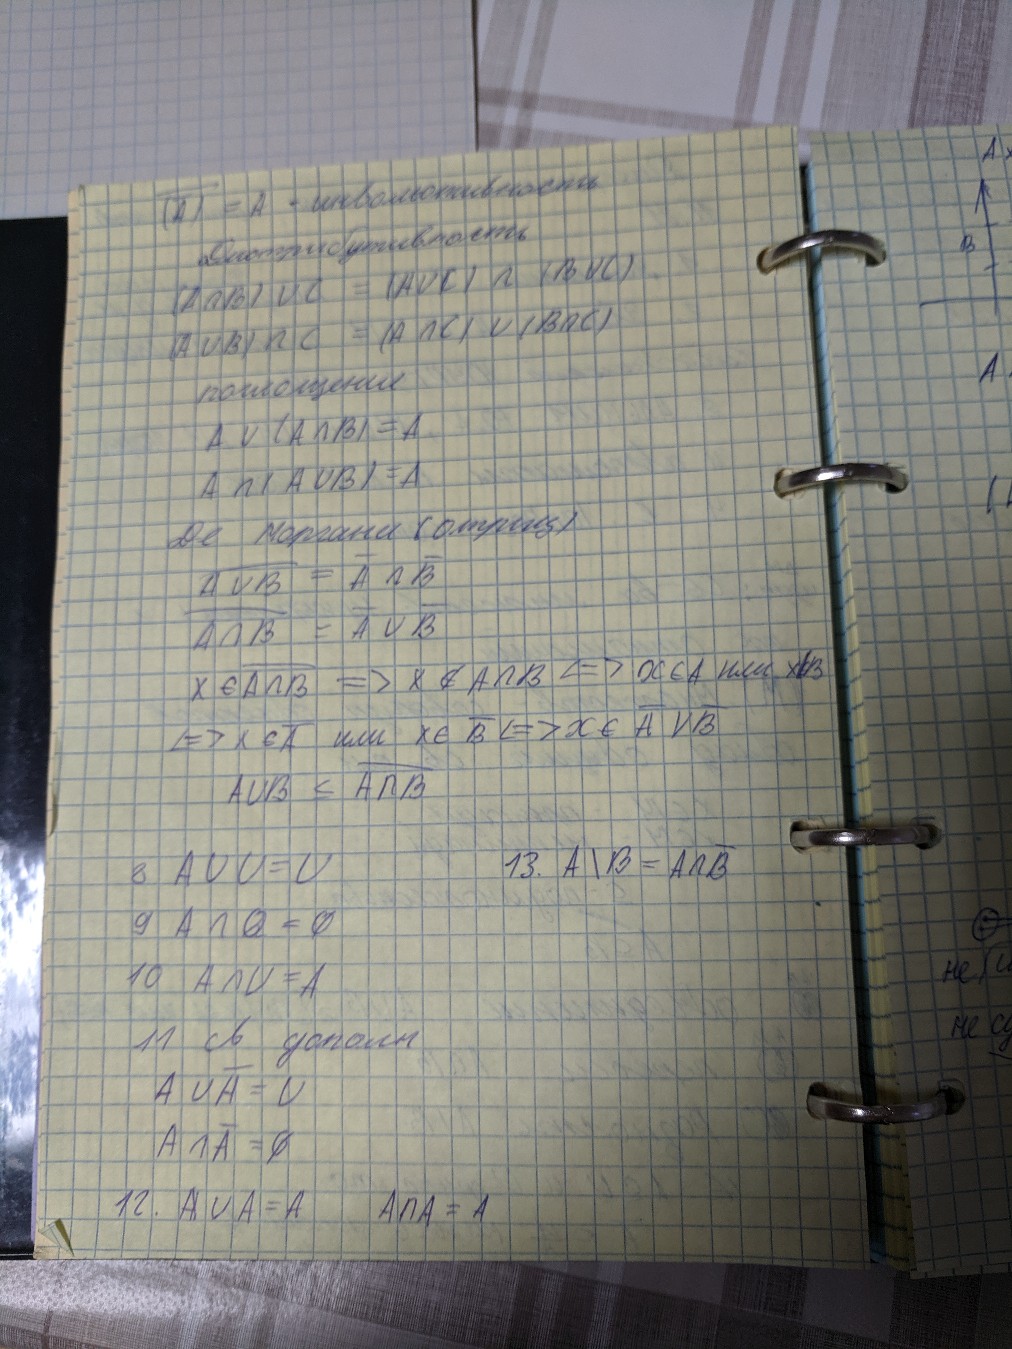 (A̅)̅ = A - инволютивность
Дистрибутивность
(A∩B) ∪ C = (A∪C) ∩ (B∪C)
(A∪B) ∩ C = (A∩C) ∪ (B∩C)
поглощение
A ∪ (A∩B) = A
A ∩ (A∪B) = A
Де Моргана (отриц)
A̅ ̅∪̅ ̅B̅ = A̅ ∩ B̅
A̅ ̅∩̅ ̅B̅ = A̅ ∪ B̅
x ∈ A̅∩̅B̅ => x ∉ A∩B <=> x ∈ A или x B
<=> x ∈ A̅ или x ∈ B̅ <=> x ∈ A̅ ∪ B̅
A∪B ⊆ A̅∩̅B̅
8 A ∪ U = U
13. A \ B = A∩B̅
9 A ∩ Q = ∅
10 A ∩ U = A
11 св дополн
A ∪ A̅ = U
A ∩ A̅ = ∅
12. A ∪ A = A A∩A = A
A
B
A
(
не
не